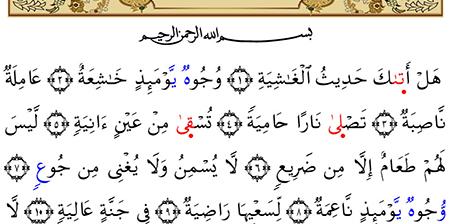 بسم الله الرحمن الرحيم
هَلْ أَتَىٰكَ حَدِيثُ ٱلْغَٰشِيَةِ ﴿١﴾ وُجُوهٌ يَوْمَئِذٍ خَٰشِعَةٌ ﴿٢﴾ عَامِلَةٌ
نَّاصِبَةٌ ﴿٣﴾ تَصْلَىٰ نَارًا حَامِيَةً ﴿٤﴾ تُسْقَىٰ مِنْ عَيْنٍ ءَانِيَةٍ ﴿٥﴾ لَّيْسَ
لَهُمْ طَعَامٌ إِلَّا مِن ضَرِيعٍ ﴿٦﴾ لَّا يُسْمِنُ وَلَا يُغْنِى مِن جُوعٍ ﴿٧﴾
وُجُوهٌ يَوْمَئِذٍ نَّاعِمَةٌ ﴿٨﴾ لِّسَعْيِهَا رَاضِيَةٌ ﴿٩﴾ فِى جَنَّةٍ عَالِيَةٍ ﴿١٠﴾ لَّا